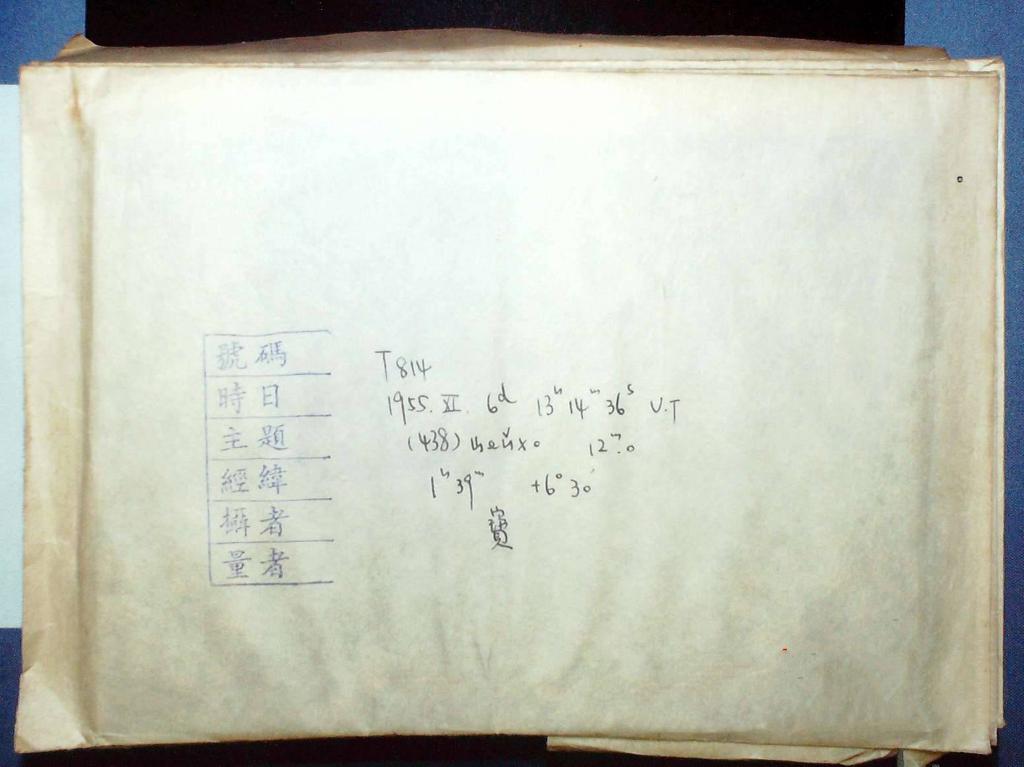 號碼 T 814
時日 1955. XI. 6ᵈ 13ʰ 14ᵐ 36ˢ U.T
主題 (438) Цейхо 12ᵐ.0
經緯 1ʰ 39ᵐ +6° 30′
攝者 寶
量者